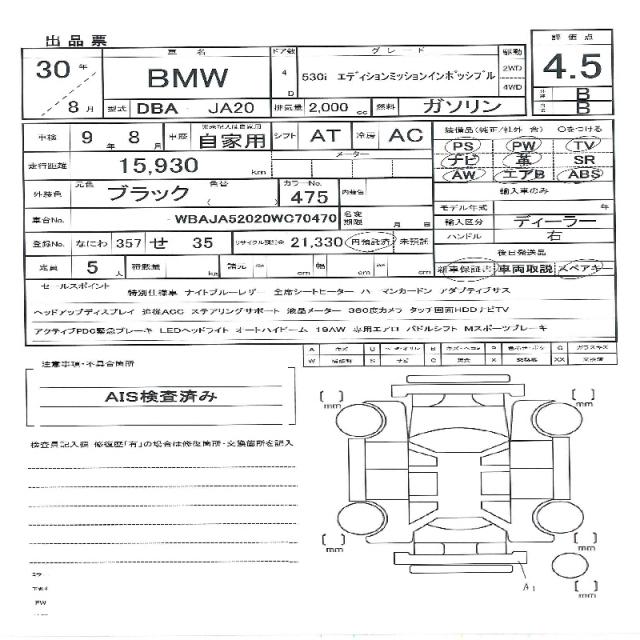 出品票
車名 ドア数 グレード 駆動 評価点
30年 BMW 4D 530i エディションミッションインポッシブル 2WD 4WD 4.5
8月 型式 DBA - JA20 排気量 2,000 cc 燃料 ガソリン B
B
車検 9年 8月 車歴 自家用 シフト AT 冷房 AC 装備品(純正/社外 含) ○をつける
PS PW TV
走行距離 15,930 km メーター ナビ 革 SR
AW エアB ABS
外装色 元色 ブラック 色替 ( カラーNo. 475 内装色 輸入車のみ
モデル年式 年
車台No. - WBAJA52020WC70470 名変期限 月 日 輸入区分 ディーラー
ハンドル 右
登録No. なにわ 357 せ 35 リサイクル預託金 21,330 円預託済 未預託
後日発送品
定員 5人 荷数量 kg 諸元 cm 幅 cm cm 新車保証書 車両取説 スペアキー
セールスポイント 特別仕様車 ナイトブルーレザー 全席シートヒーター ハーマンカードン アダプティブサス
ヘッドアップディスプレイ 追従ACC ステアリングサポート 液晶メーター 360度カメラ タッチ画面HDDナビTV
アクティブPDC緊急ブレーキ LEDヘッドライト オートハイビーム 19AW 専用エアロ パドルシフト Mスポーツブレーキ
注意事項・不具合箇所
AIS検査済み
検査員記入欄 修復歴「有」の場合は修復箇所・交換箇所を記入
[ ] mm
[ ] mm
[ ] mm
[ ] mm
[ ] mm
A1
PW